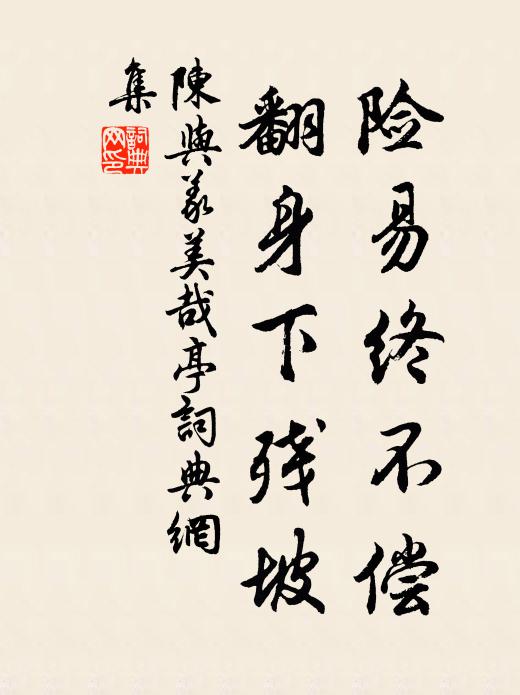 险易终不偿
翻身下残坡
陳與義美哉亭詞典網
集
詞典网印